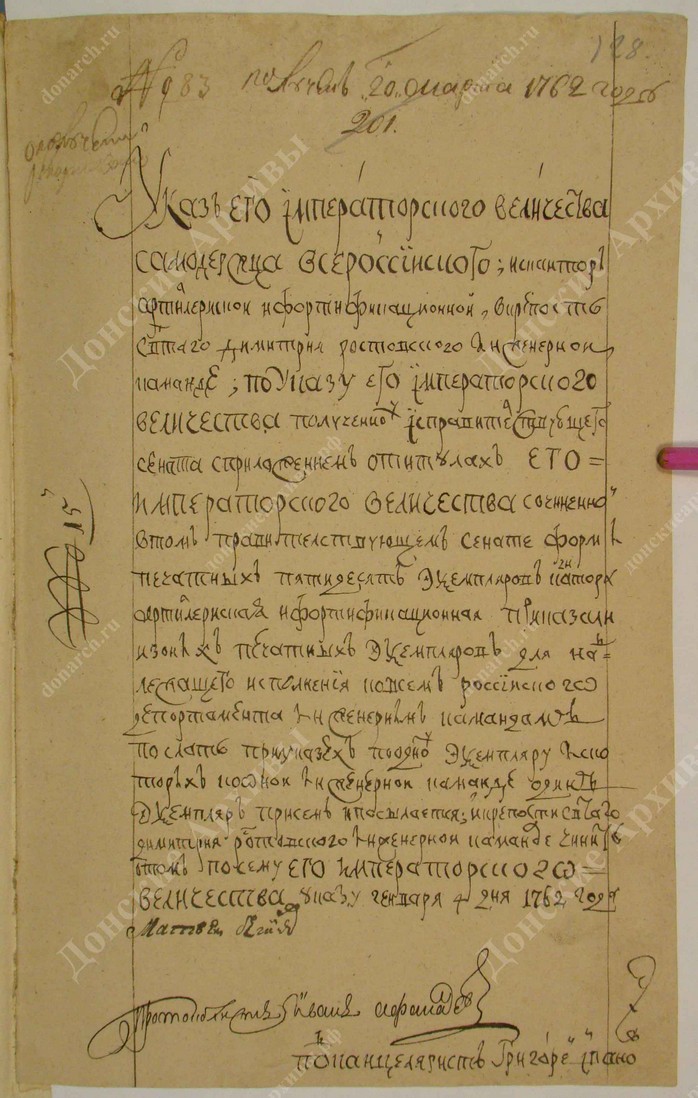 128.
№ 983 полученъ 20 марта 1762 году
201.
Указъ его імператорского величества
самодержца всероссiиского; ис канторъ
артилериской и фортификационной, в крепость
святаго димитрия ростовского инженерной
команде; по указу его імператорского
величества полученному ис правителствующего
сената с приложениемъ о титулахъ его =
императорского величества сочиненной
в томъ правителствующемъ сенате формы
печатныхъ пятидесятъ экземпляровъ канторы
артилериская и фортификационная приказали
из оныхъ печатныхъ экземпляровъ для на=
лежащего исполнения ко всемъ российского
депортамента инженернымъ командамъ
послать при указехъ по одному экземпляру ис ко
торыхъ к оной инженерной команде одинъ
экземпляръ при семъ и посылается; и крепости святаго
димитрия ростовского инженерной команде чинить
о томъ по сему его императорского =
величества указу генваря 4 дня 1762 году
Матвей
№ 15
Протоколистъ Иванъ
Подканцеляристъ Григорей